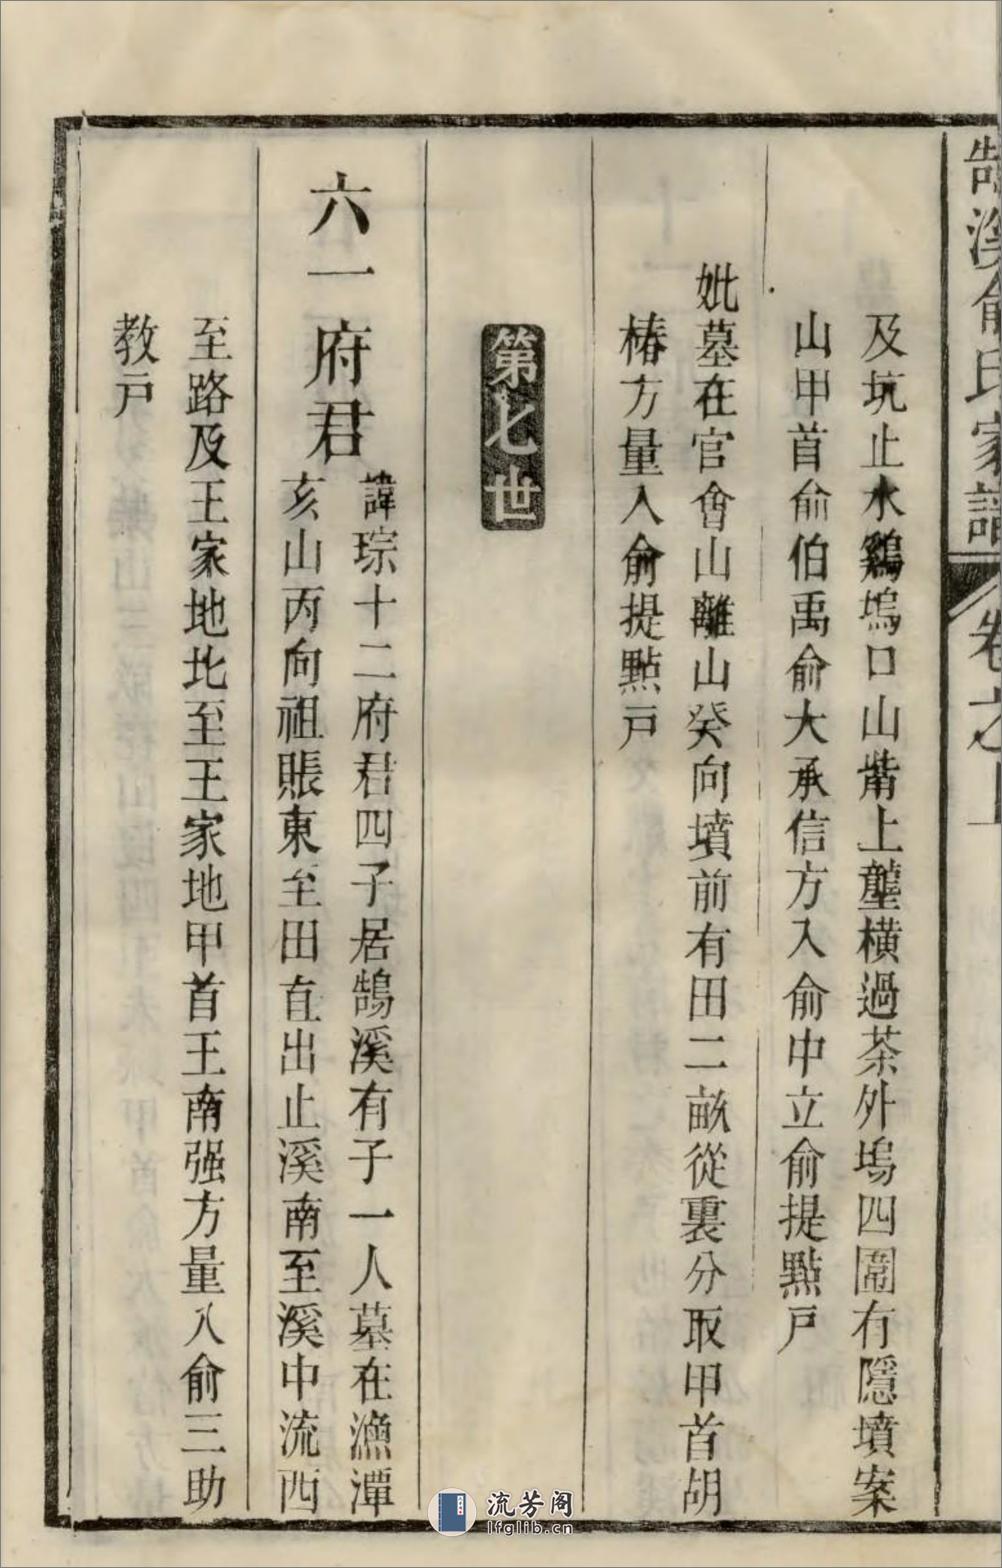 鵠溪俞氏家譜 卷之上
及坑止水鷄塢口山觜上壟橫過茶外塢四圍有隱墳案
山甲首俞伯禹俞大承信方入俞中立俞提點戸
妣墓在官會山離山癸向墳前有田二畝從裏分取甲首胡
椿方量入俞提點戸
第七世
六一府君
諱琮十二府君四子居鵠溪有子一人墓在漁潭
亥山丙向祖賬東至田直出止溪南至溪中流西
至路及王家地北至王家地甲首王南强方量入俞三助
教戸
流芳阁
lfglib.cn